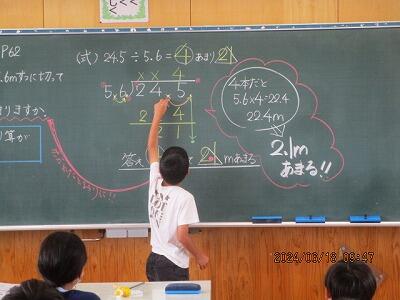 P62
(式) 24.5÷5.6=4あまり2.1
.6mずつに切って
××4
5.6)24.5
224
21
りますか。
り算が
答え
2.1mあまる
4本だと
5.6×4=22.4
22.4m
2.1m
あまる!!
2024/06/18 09:47